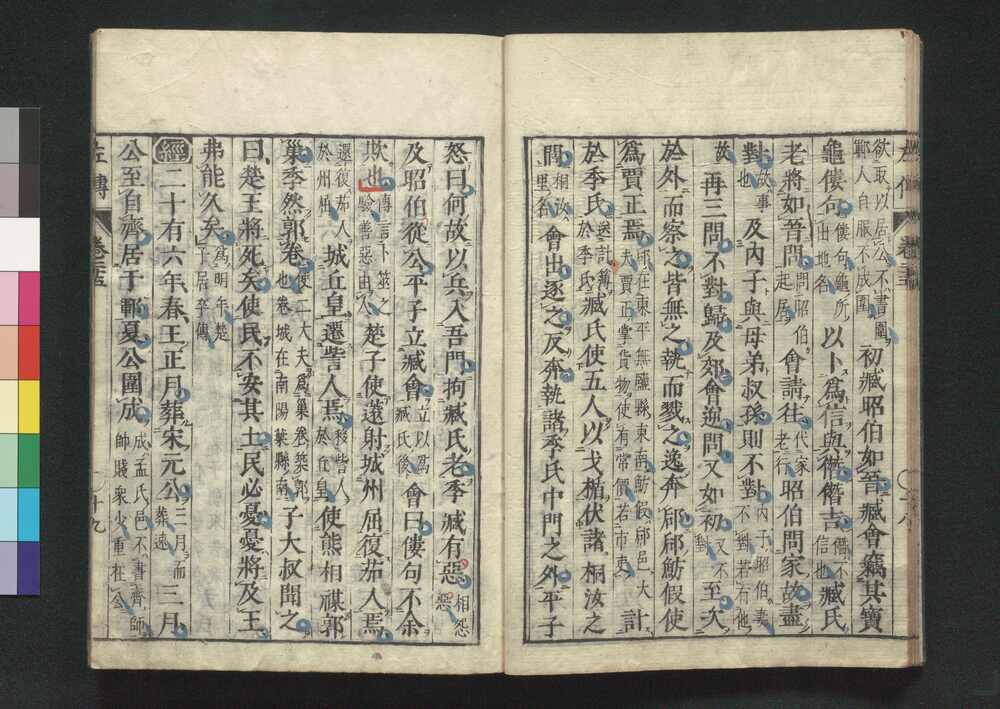 左傳
欲取以居公不書圍鄆人自服不成圍 初臧昭伯如晉臧會竊其寶
龜僂句 僂句龜所出地名 以卜爲信與僭僭吉 僭不信也 臧氏
老將如晉問 問昭伯起居 會請往 代家老行 昭伯問家故盡
對 故事也 及內子與母弟叔孫則不對 內子昭伯妻不對若有他
故 再三問不對歸及郊會逆問又如初 又不對 至次
於外而察之皆無之執而戮之逸奔郈郈魴假使
爲賈正焉 郈在東平無鹽縣東南魴假郈邑大夫賈正掌貨物使有常價若市吏 計
於季氏 送計簿於季氏 臧氏使五人以戈楯伏諸桐汝之
閭 桐汝里名 會出逐之反奔執諸季氏中門之外平子
怒曰何故以兵入吾門拘臧氏老季臧有惡 相怨惡
及昭伯從公平子立臧會 立以爲臧氏後 會曰僂句不余
欺也 傳言卜筮之驗善惡由人 楚子使薳射城州屈復茄人焉
還復茄人於州屈 城丘皇遷訾人焉 移訾人於丘皇 使熊相禖郭
巢季然郭卷 使二大夫爲巢卷築郭也卷城在南陽葉縣南 子大叔聞之
曰楚王將死矣使民不安其土民必憂憂將及王
弗能久矣 爲明年楚子居卒傳
經 二十有六年春王正月葬宋元公 三月而葬速 三月
公至自齊居于鄆夏公圍成 成孟氏邑不書齊師師賤衆少重在公
左傳 十九